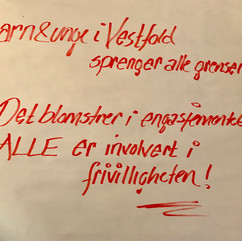 arn&unge i Vestfold
sprenger alle grenser
Det blomstrer i engasjementet
ALLE er involvert i
frivilligheten!